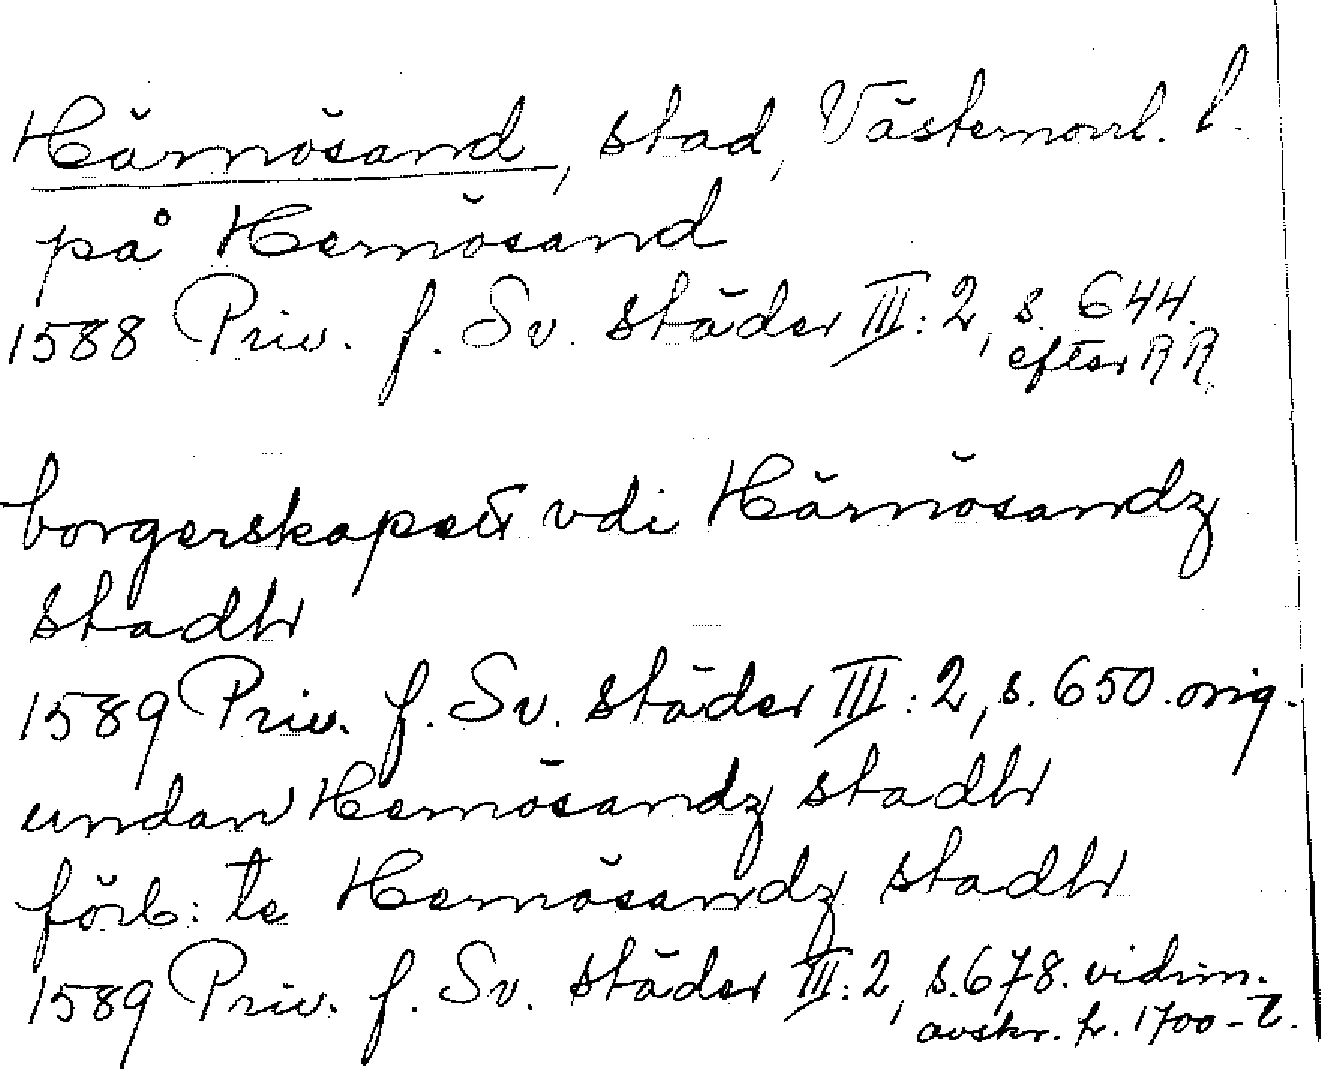 Härnösand, stad, Västernorrl. l.
på Hernösand
1588 Priv. f. Sv. städer III:2, s. 644.
efter RR
borgerskapet vdi Härnösandz
stadh
1589 Priv. f. Sv. städer III:2, s. 650. orig.
undan Hernösandz stadh
förb: te Hernösandz stadh
1589 Priv. f. Sv. städer III:2, s. 678. vidim.
avskr. fr. 1700-t.